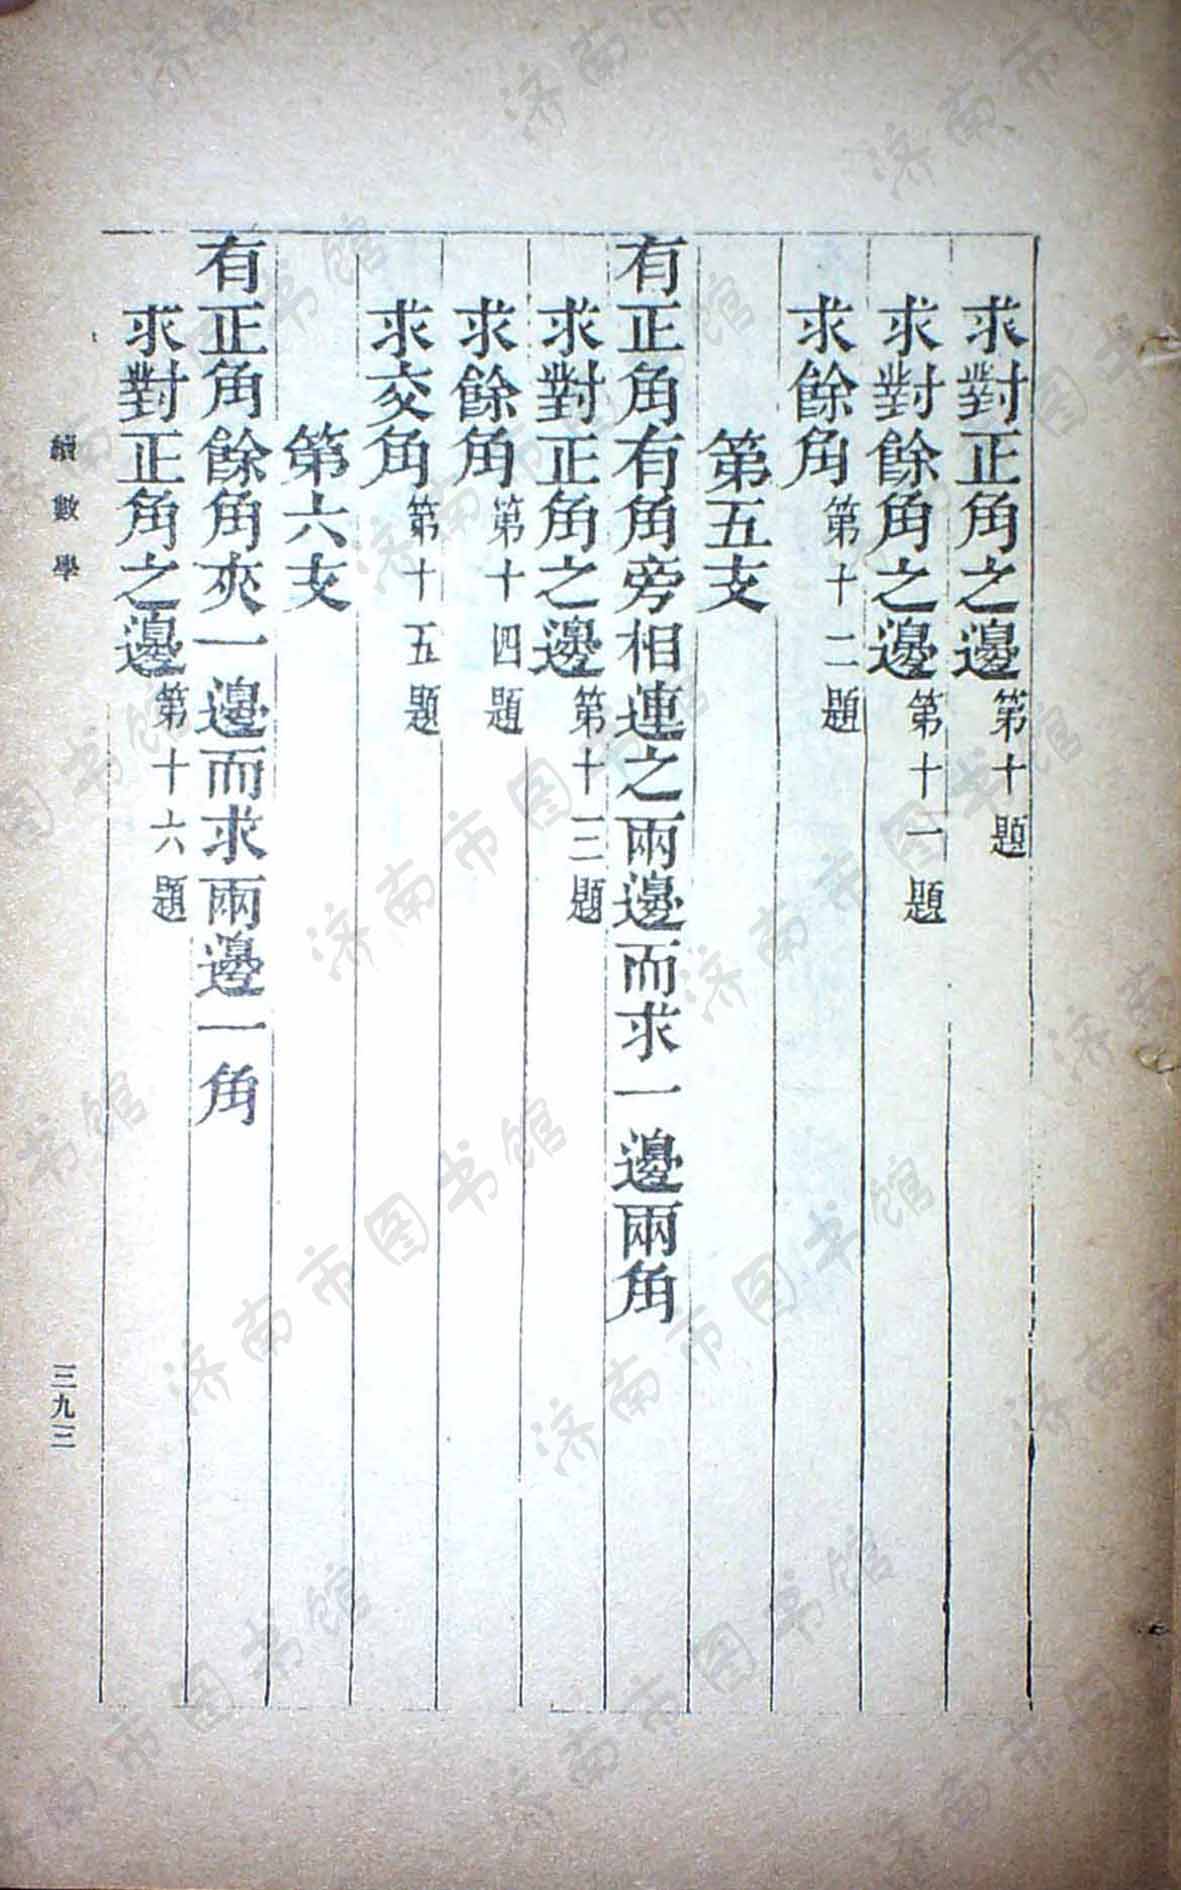 求對正角之邊第十題
求對餘角之邊第十一題
求餘角第十二題
第五支
有正角有角旁相連之兩邊而求一邊兩角
求對正角之邊第十三題
求餘角第十四題
求交角第十五題
第六支
有正角餘角夾一邊而求兩邊一角
求對正角之邊第十六題
續數學
三九三
济南市图书馆